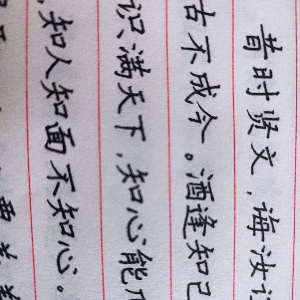 昔时贤文，诲汝
古不成今。酒逢知己
识满天下，知心能几
，知人知面不知心。